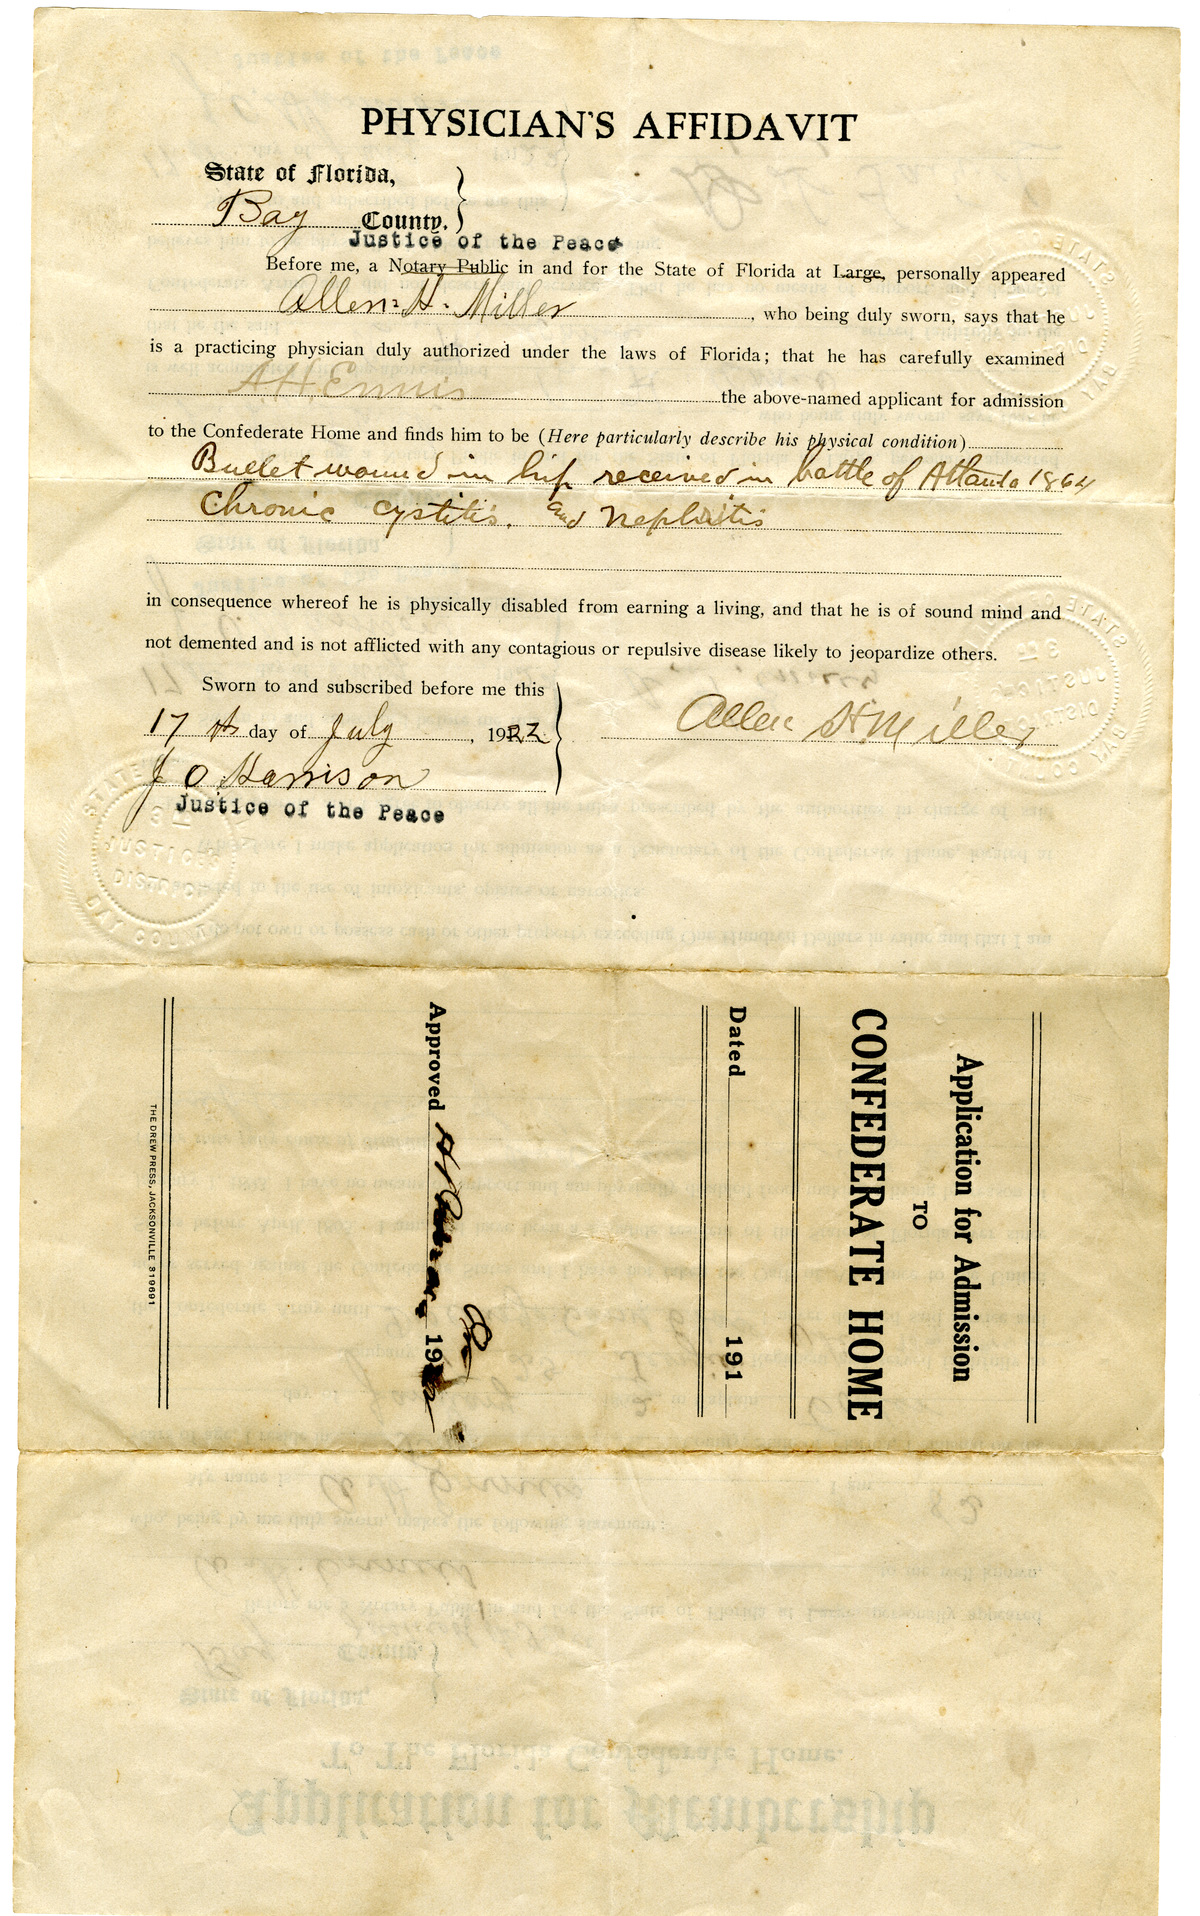 PHYSICIAN'S AFFIDAVIT
State of Florida,
Bay County.
Justice of the Peace
Before me, a Notary Public in and for the State of Florida at Large, personally appeared
Allen H. Miller, who being duly sworn, says that he
is a practicing physician duly authorized under the laws of Florida; that he has carefully examined
A H Ennis the above-named applicant for admission
to the Confederate Home and finds him to be (Here particularly describe his physical condition)
Bullet wound in hip received in battle of Atlanta 1864
Chronic cystitis. and Nephritis
in consequence whereof he is physically disabled from earning a living, and that he is of sound mind and
not demented and is not afflicted with any contagious or repulsive disease likely to jeopardize others.
Sworn to and subscribed before me this
17th day of July, 1922
Allen H Miller
J O Harrison
Justice of the Peace
STATE
3
JUSTICES
DISTRICT
BAY COUNTY
Application for Admission
TO
CONFEDERATE HOME
Dated 191
Approved 19
THE DREW PRESS, JACKSONVILLE 319691